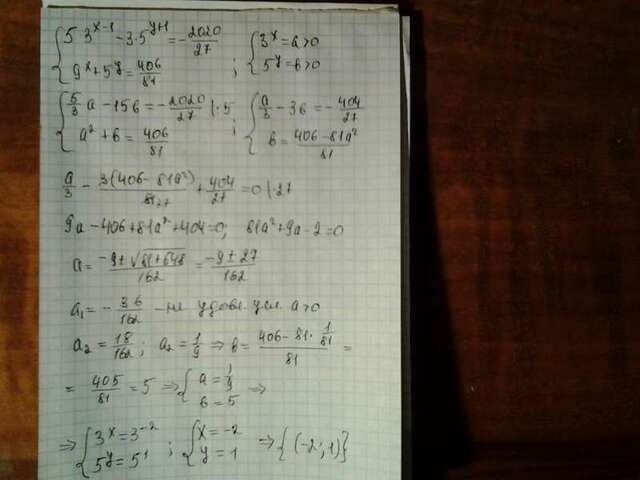 { 5·3^(x-1) - 3·5^(y+1) = -2020/27 { 3^x = a > 0
{ 9^x + 5^y = 406/81 ; { 5^y = b > 0
{ 5/3 a - 15b = -2020/27 |:5 { a/3 - 3b = -404/27
{ a² + b = 406/81 ; { b = (406 - 81a²)/81
a/3 - 3(406 - 81a²)/81 27 + 404/27 = 0 |·27
9a - 406 + 81a² + 404 = 0; 81a² + 9a - 2 = 0
a = (-9 ± √(81 + 648))/162 = (-9 ± 27)/162
a₁ = -36/162 - не удовл. усл. a > 0
a₂ = 18/162 ; a₂ = 1/9 ⇒ b = (406 - 81·1/81)/81 =
= 405/81 = 5 ⇒ { a = 1/9 ⇒
{ b = 5
⇒ { 3^x = 3^(-2) ; { x = -2 ⇒ {(-2; 1)}
{ 5^y = 5^1 { y = 1